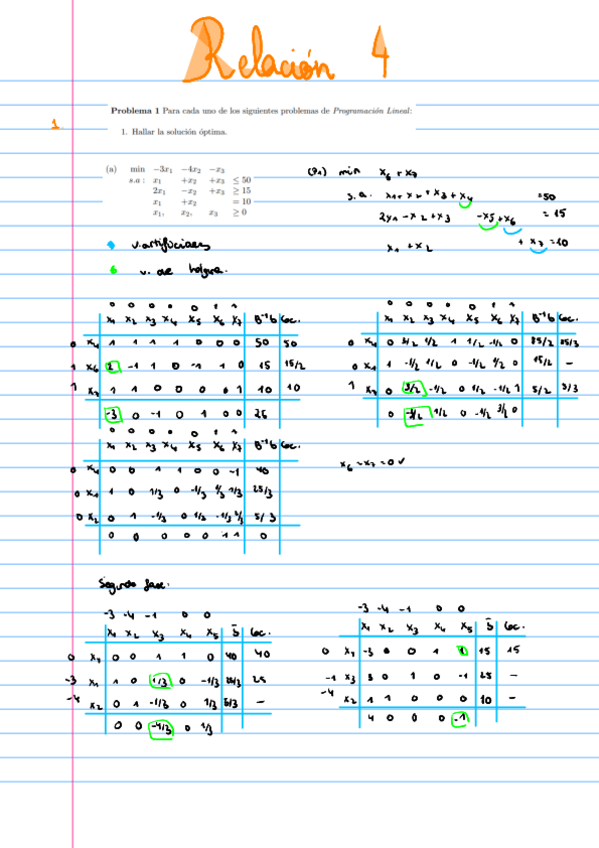 Relación 4
1.
Problema 1 Para cada uno de los siguientes problemas de Programación Lineal:
1. Hallar la solución óptima.
(a) min −3x₁ −4x₂ −x₃
s.a : x₁ +x₂ +x₃ ≤ 50
2x₁ −x₂ +x₃ ≥ 15
x₁ +x₂ = 10
x₁, x₂, x₃ ≥ 0
min x₆ + x₇
s.a. x₁ + x₂ + x₃ + x₄ = 50
2x₁ − x₂ + x₃ −x₅ + x₆ = 15
x₁ + x₂ + x₇ = 10
v. artificiales
v. de holgura.
0 0 0 0 0 1 1
x₁ x₂ x₃ x₄ x₅ x₆ x₇ B⁻¹b Coc.
0 x₄ 1 1 1 1 0 0 0 50 50
1 x₆ 2 −1 1 0 −1 1 0 15 15/2
1 x₇ 1 1 0 0 0 0 1 10 10
−3 0 −1 0 1 0 0 25
0 0 0 0 0 1 1
x₁ x₂ x₃ x₄ x₅ x₆ x₇ B⁻¹b Coc.
0 x₄ 0 3/2 1/2 1 1/2 −1/2 0 85/2 85/3
0 x₁ 1 −1/2 1/2 0 −1/2 1/2 0 15/2 −
1 x₇ 0 3/2 −1/2 0 1/2 −1/2 1 5/2 5/3
0 −3/2 1/2 0 −1/2 3/2 0
0 0 0 0 0 1 1
x₁ x₂ x₃ x₄ x₅ x₆ x₇ B⁻¹b Coc.
0 x₄ 0 0 1 1 0 0 −1 40
0 x₁ 1 0 1/3 0 −1/3 1/3 1/3 25/3
0 x₂ 0 1 −1/3 0 1/3 −1/3 2/3 5/3
0 0 0 0 0 1 1 0
x₆ = x₇ = 0 ✓
Segunda fase:
−3 −4 −1 0 0
x₁ x₂ x₃ x₄ x₅ b̄ Coc.
0 0 0 1 1 0 40 40
−3 x₁ 1 0 1/3 0 −1/3 25/3 25
−4 x₂ 0 1 −1/3 0 1/3 5/3 −
0 0 −4/3 0 1/3
−3 −4 −1 0 0
x₁ x₂ x₃ x₄ x₅ b̄ Coc.
0 −3 0 0 1 1 15 15
−1 x₃ 3 0 1 0 −1 25 −
−4 x₂ 1 1 0 0 0 10 −
4 0 0 0 −1